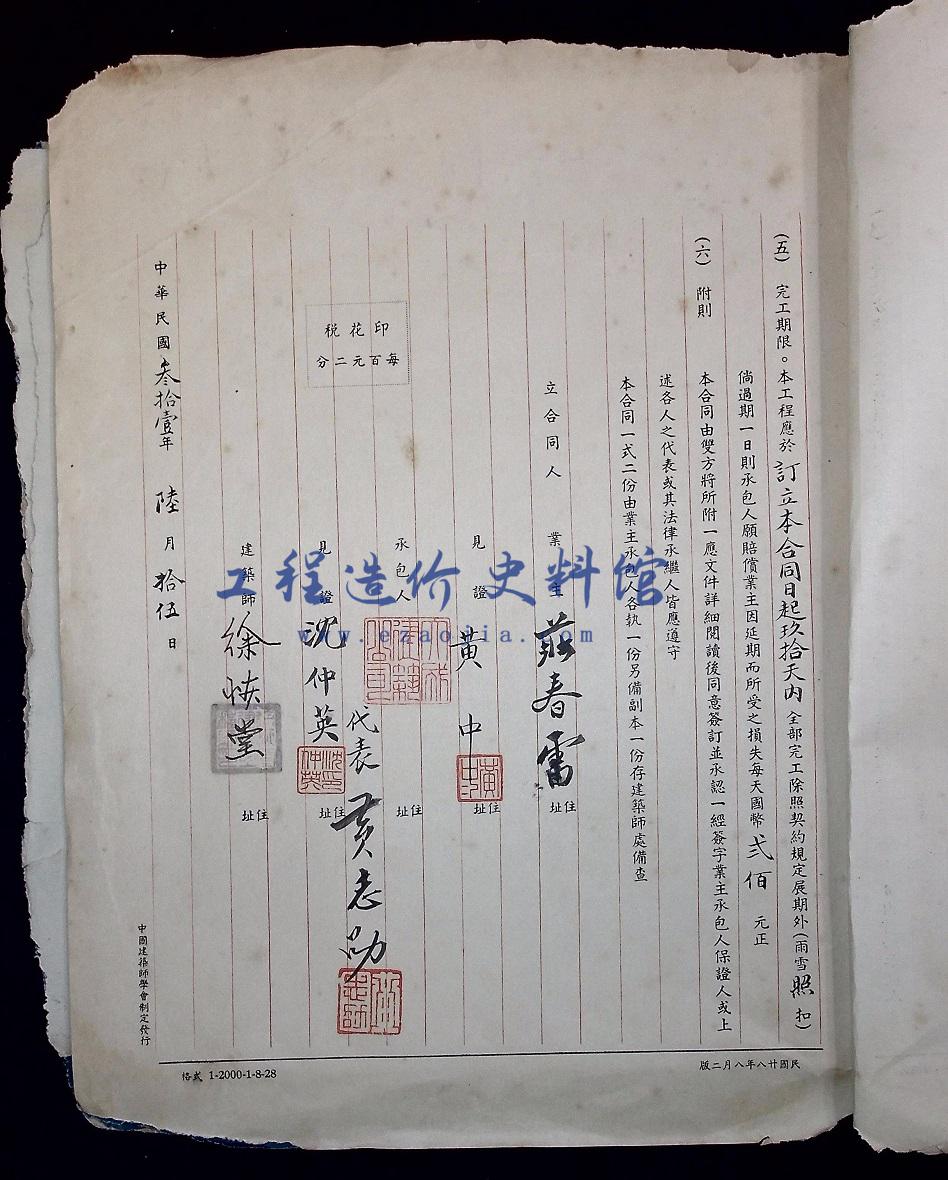 (五) 完工期限。本工程應於訂立本合同日起玖拾天內全部完工除照契約規定展期外(雨雪照扣)
倘過期一日則承包人願賠償業主因延期而所受之損失每天國幣弍佰元正
(六) 附則 本合同由雙方將所附一應文件詳細閱讀後同意簽訂並承認一經簽字業主承包人保證人或上
述各人之代表或其法律承繼人皆應遵守
本合同一式二份由業主承包人各執一份另備副本一份存建築師處備查
立合同人 業主 莊春雷 住址
見證 黃中 住址
黃中
承包人 代表 黃志劭 住址
見證 沈仲英 住址
沈仲英
印花稅
每百元二分
建築師 徐 堂 住址
中華民國叁拾壹年陸月拾伍日
中國建築師學會制定發行
民國廿八年八月二版
格式 1-2000-1-8-28
工程造价史料馆
www.ezaojia.com